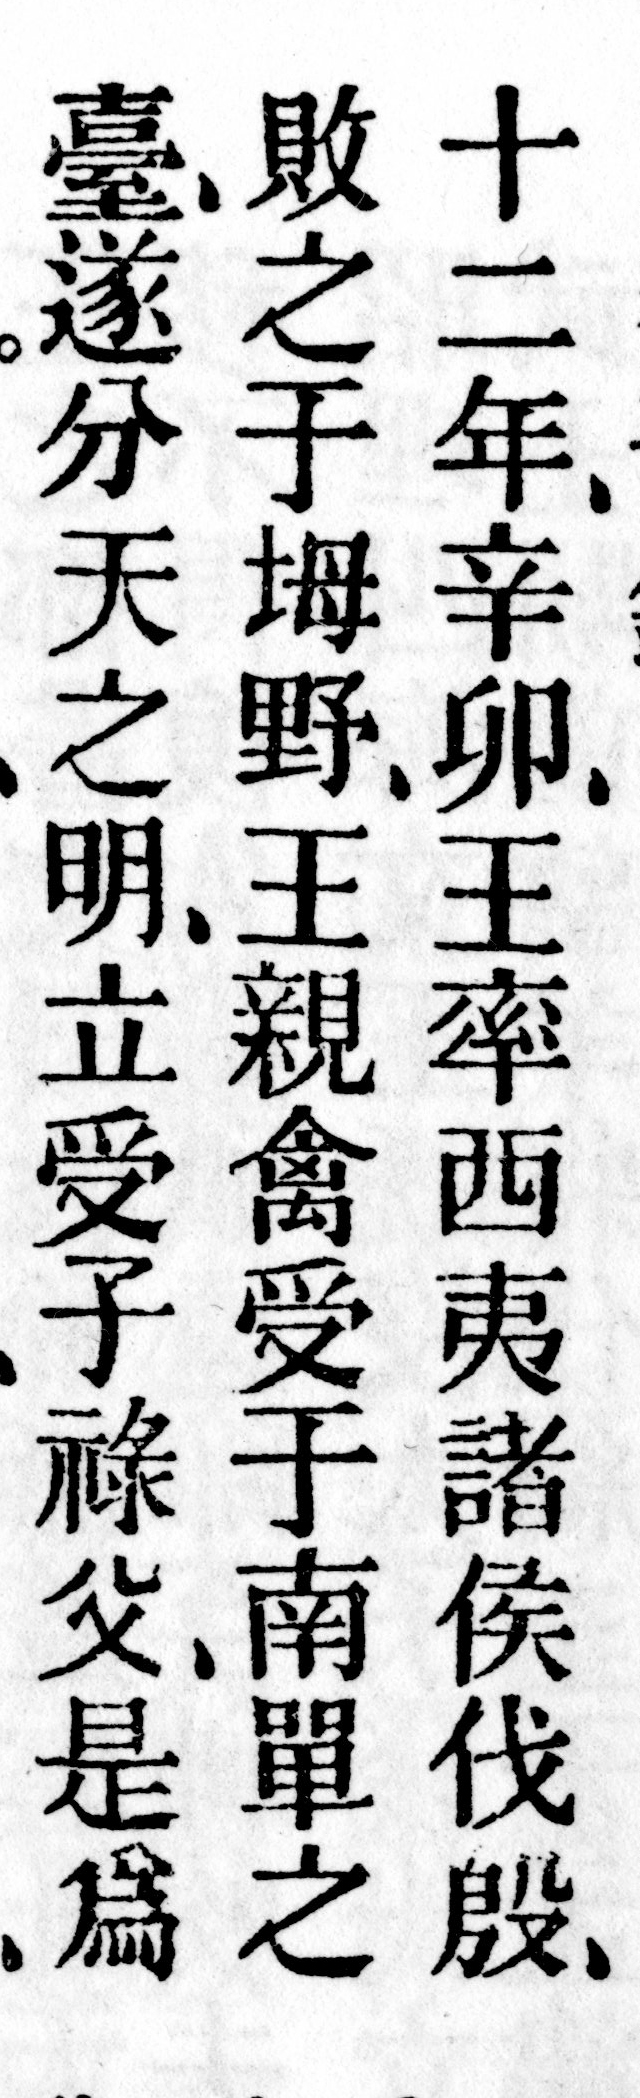 十二年、辛卯、王率西夷諸侯伐殷、
敗之于坶野、王親禽受于南單之
臺、遂分天之明、立受子祿父、是爲